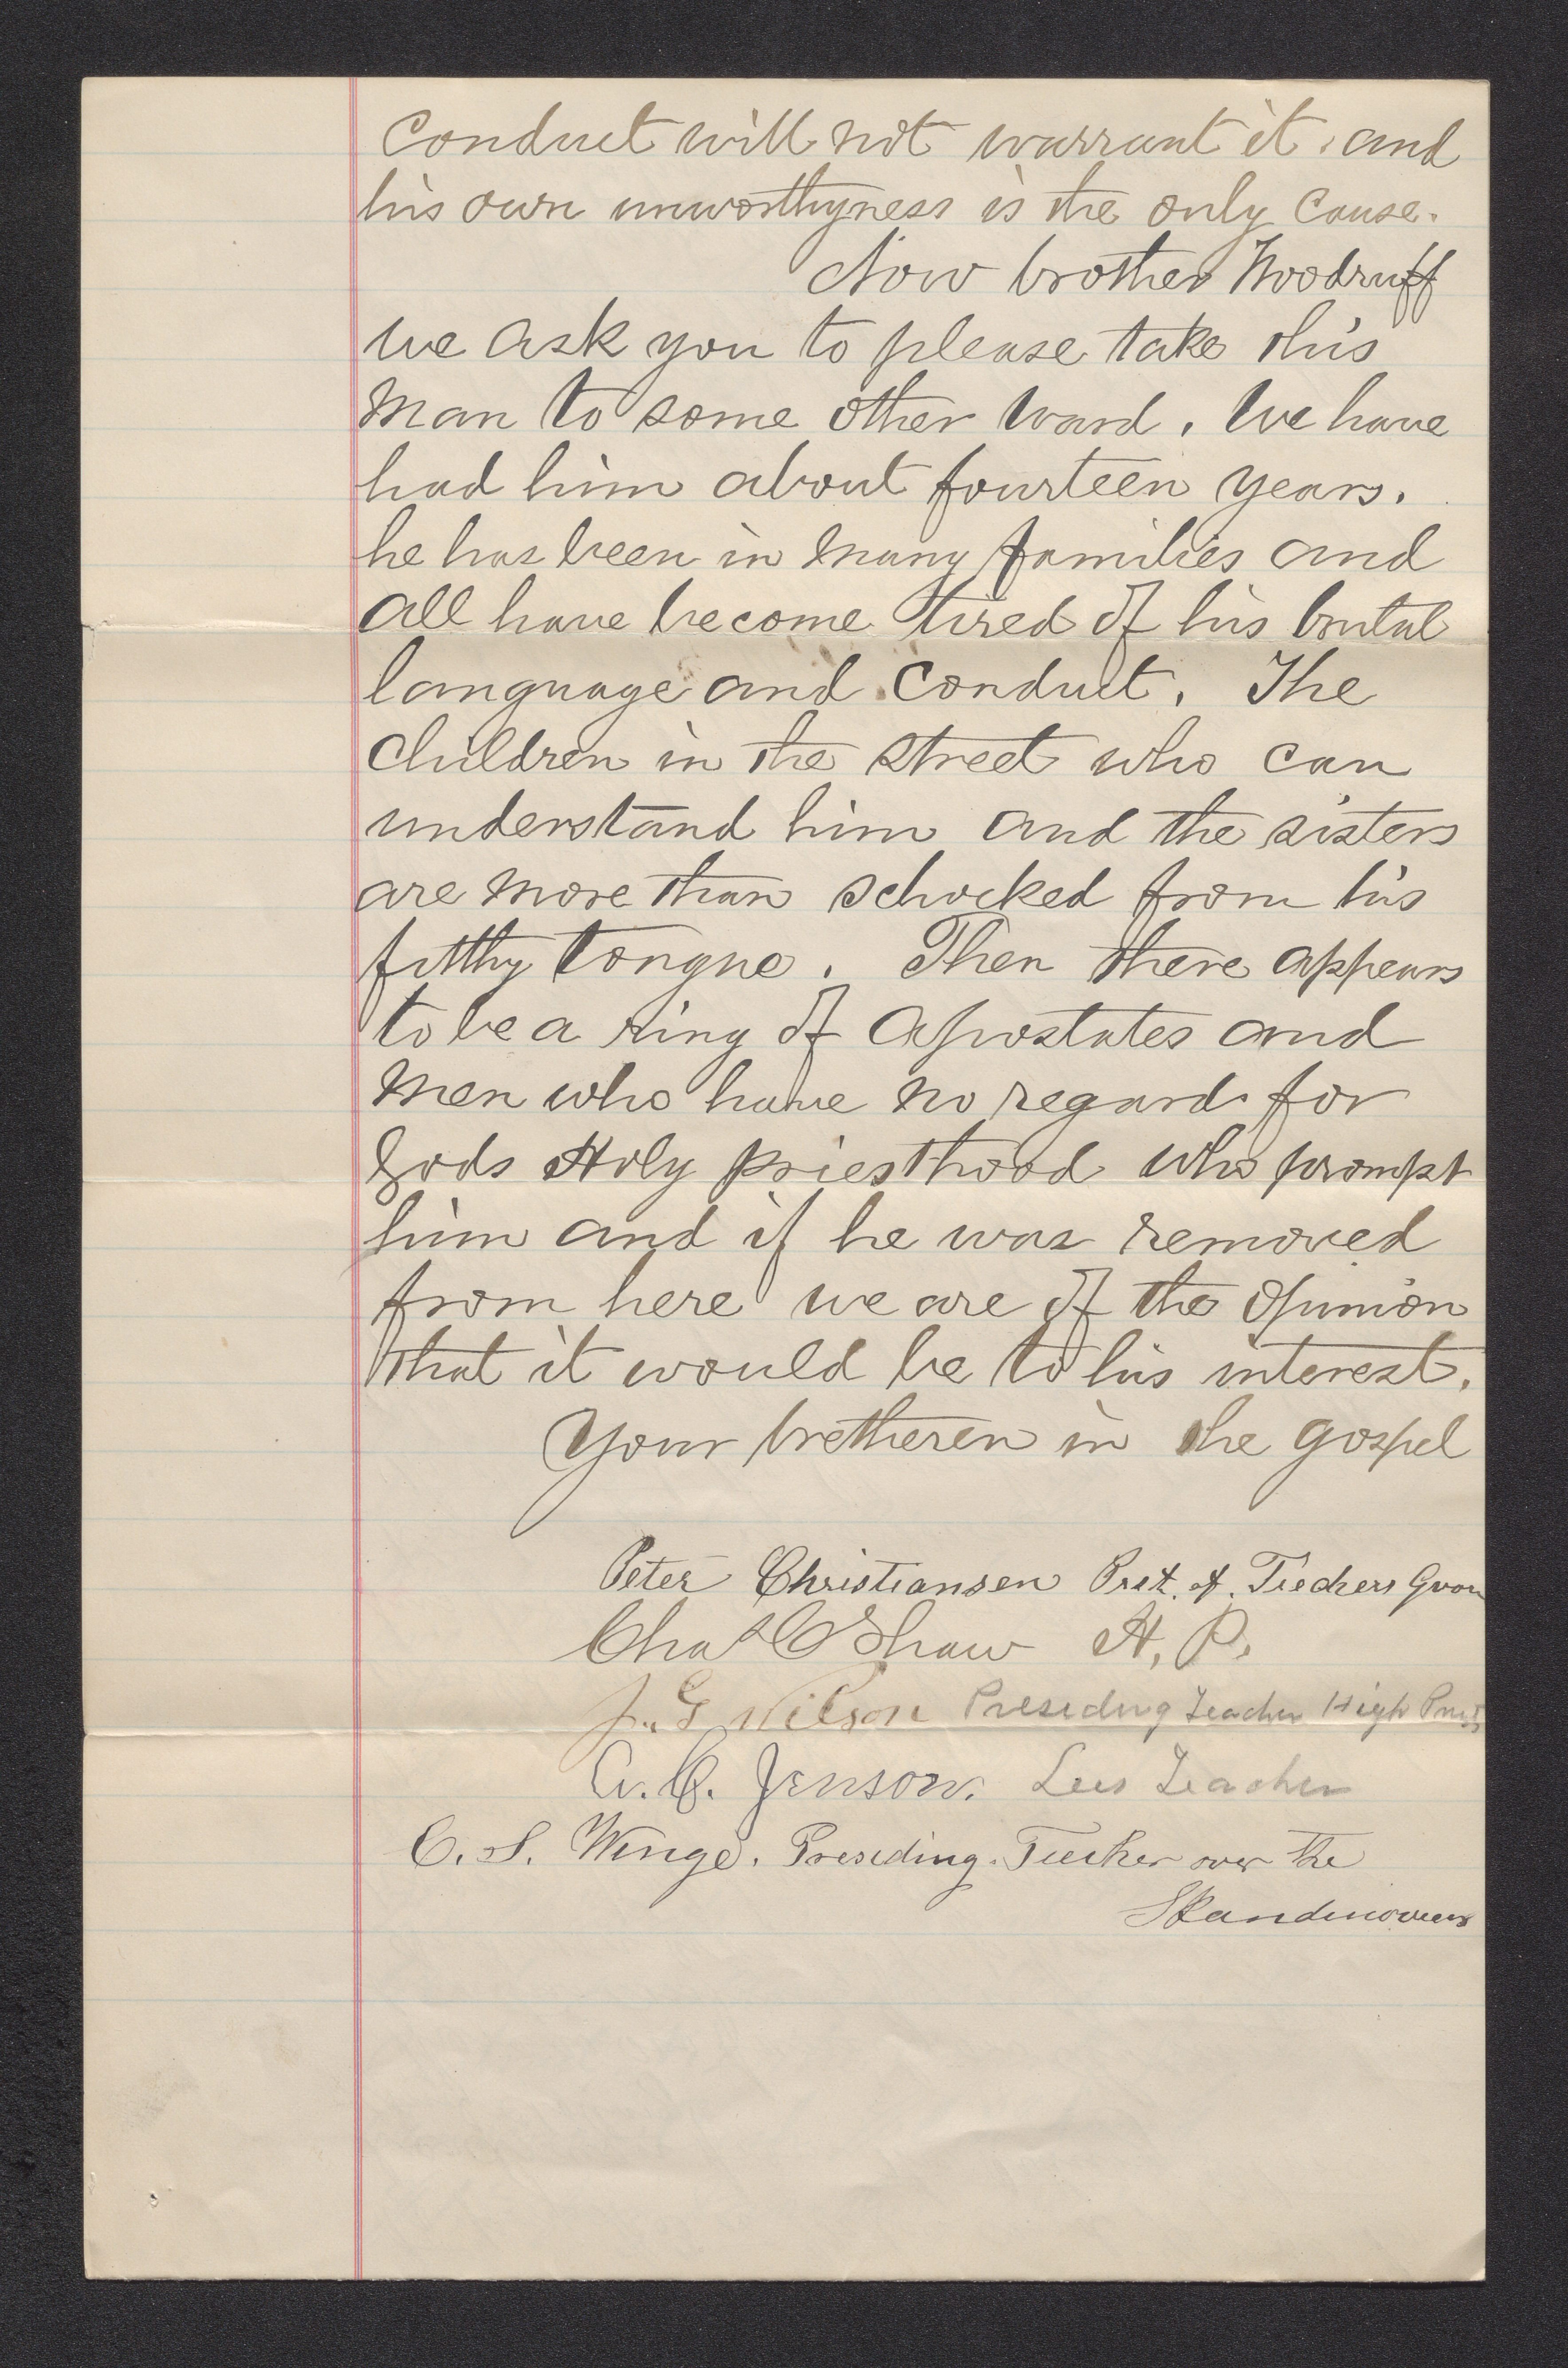 conduct will not warrant it. and
his own unworthyness is the only cause.
Now brother Woodruff
we ask you to please take this
man to some other ward. We have
had him about fourteen years.
he has been in many families and
all have become tired of his brutal
language and conduct. The
children in the street who can
understand him and the sisters
are more than schocked from his
filthy tongue. Then there appears
to be a ring of apostates and
men who have no regard for
Gods Holy priesthood who prompt
him and if he was removed
from here we are of the opinion
that it would be to his interest.
Your bretheren in the gospel
Peter Christiansen Prst. of. Tiechers Quou
Chas C Shaw H. P.
J. G Wilson Presiding Teacher High Priest
A. C. Jenson. Teacher
C. S. Winge. Presiding Tiecher over the
Skandinoviens